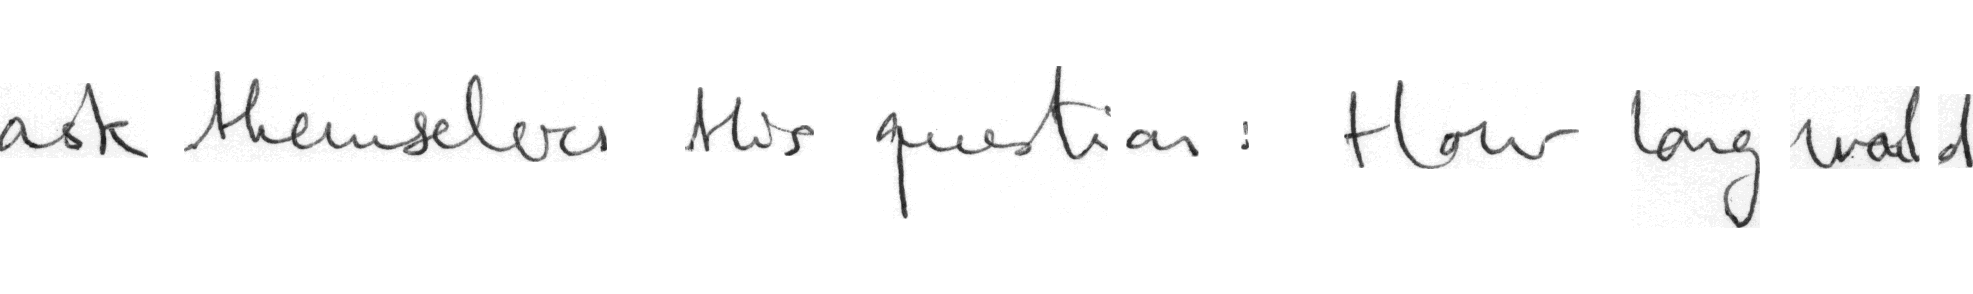 ask themselves this question : How long would